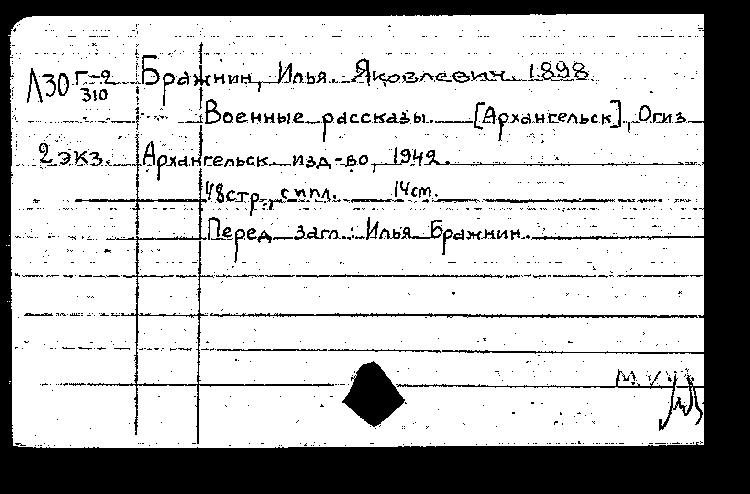 Л30 Г-9/310 Бражнин, Илья Яковлевич. 1898
Военные рассказы. [Архангельск], Огиз
2 экз. Архангельск. изд-во, 1942.
48 стр., с илл. 14 см.
Перед загл.: Илья Бражнин.